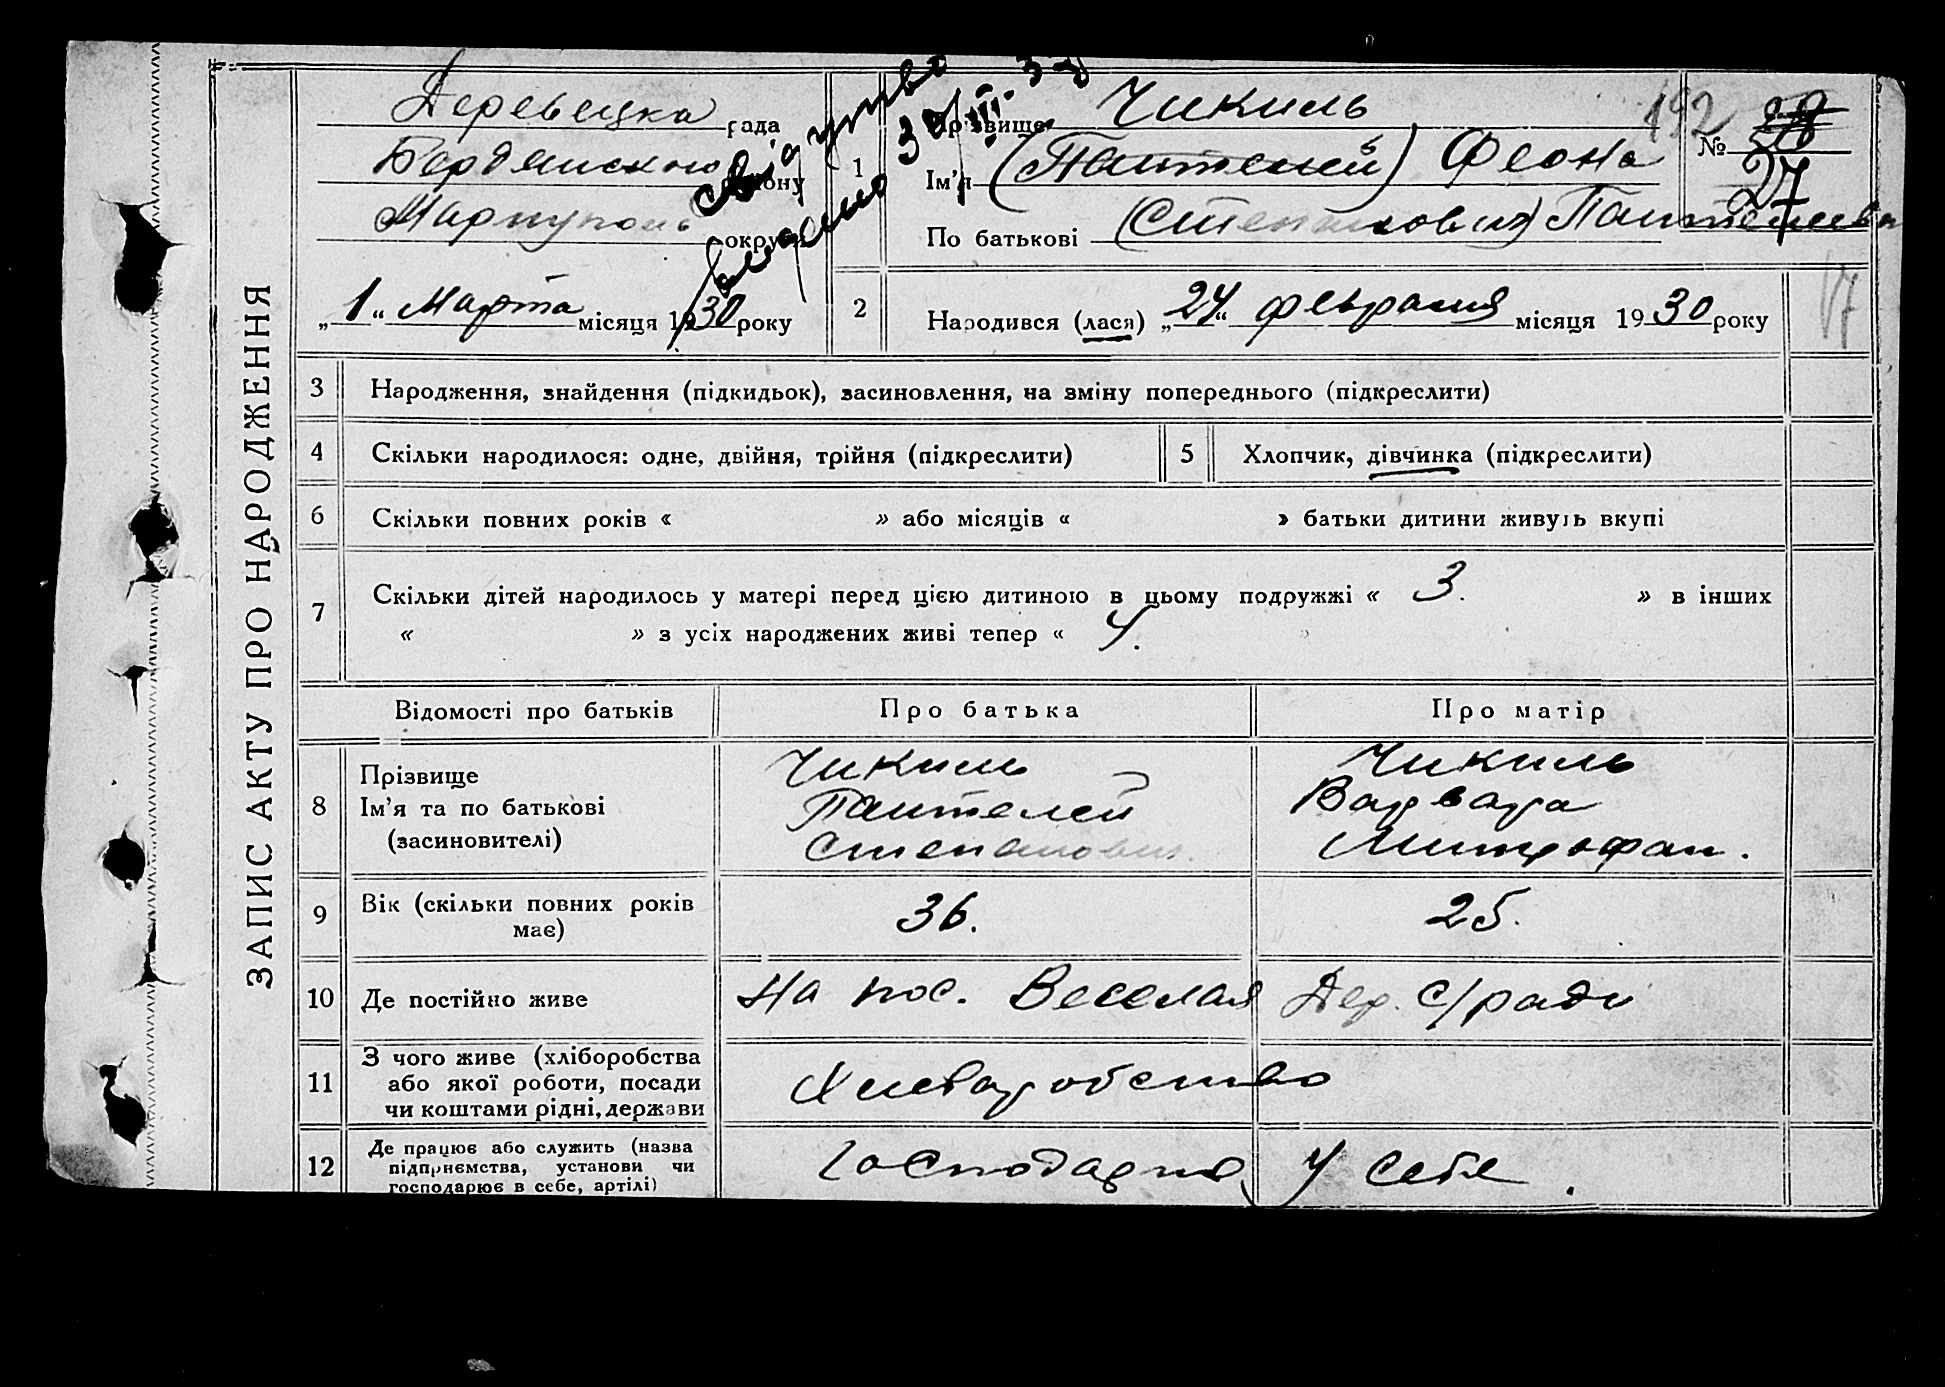 ЗАПИС АКТУ ПРО НАРОДЖЕННЯ
Деревецка рада
Бердянского району
Мариуполь округи
„1“ Марта місяця 1930 року
відсутно
30/III-30
192
№ 27
1 Прізвище Чикиль
Ім'я (Пантелей) Феона
По батькові (Степанович) Пантелеева
2 Народився (лася) „24“ февраля місяця 1930 року
17
3 Народження, знайдення (підкидьок), засиновлення, на зміну попереднього (підкреслити)
4 Скільки народилося: одне, двійня, трійня (підкреслити) 5 Хлопчик, дівчинка (підкреслити)
6 Скільки повних років « » або місяців « » батьки дитини живуть вкупі
7 Скільки дітей народилось у матері перед цією дитиною в цьому подружжі « 3. » в інших
« » з усіх народжених живі тепер « 4.
Відомості про батьків Про батька Про матір
8 Прізвище Чикиль Чикиль
Ім'я та по батькові Пантелей Варвара
(засиновителі) Степанович Митрофан.
9 Вік (скільки повних років має) 36. 25.
10 Де постійно живе на пос. Веселая Дер. с/ради
11 З чого живе (хліборобства
або якої роботи, посади
чи коштами рідні, держави Хлебаробство
12 Де працює або служить (назва
підприємства, установи чи
господарює в себе, артілі) Господарно у себе.